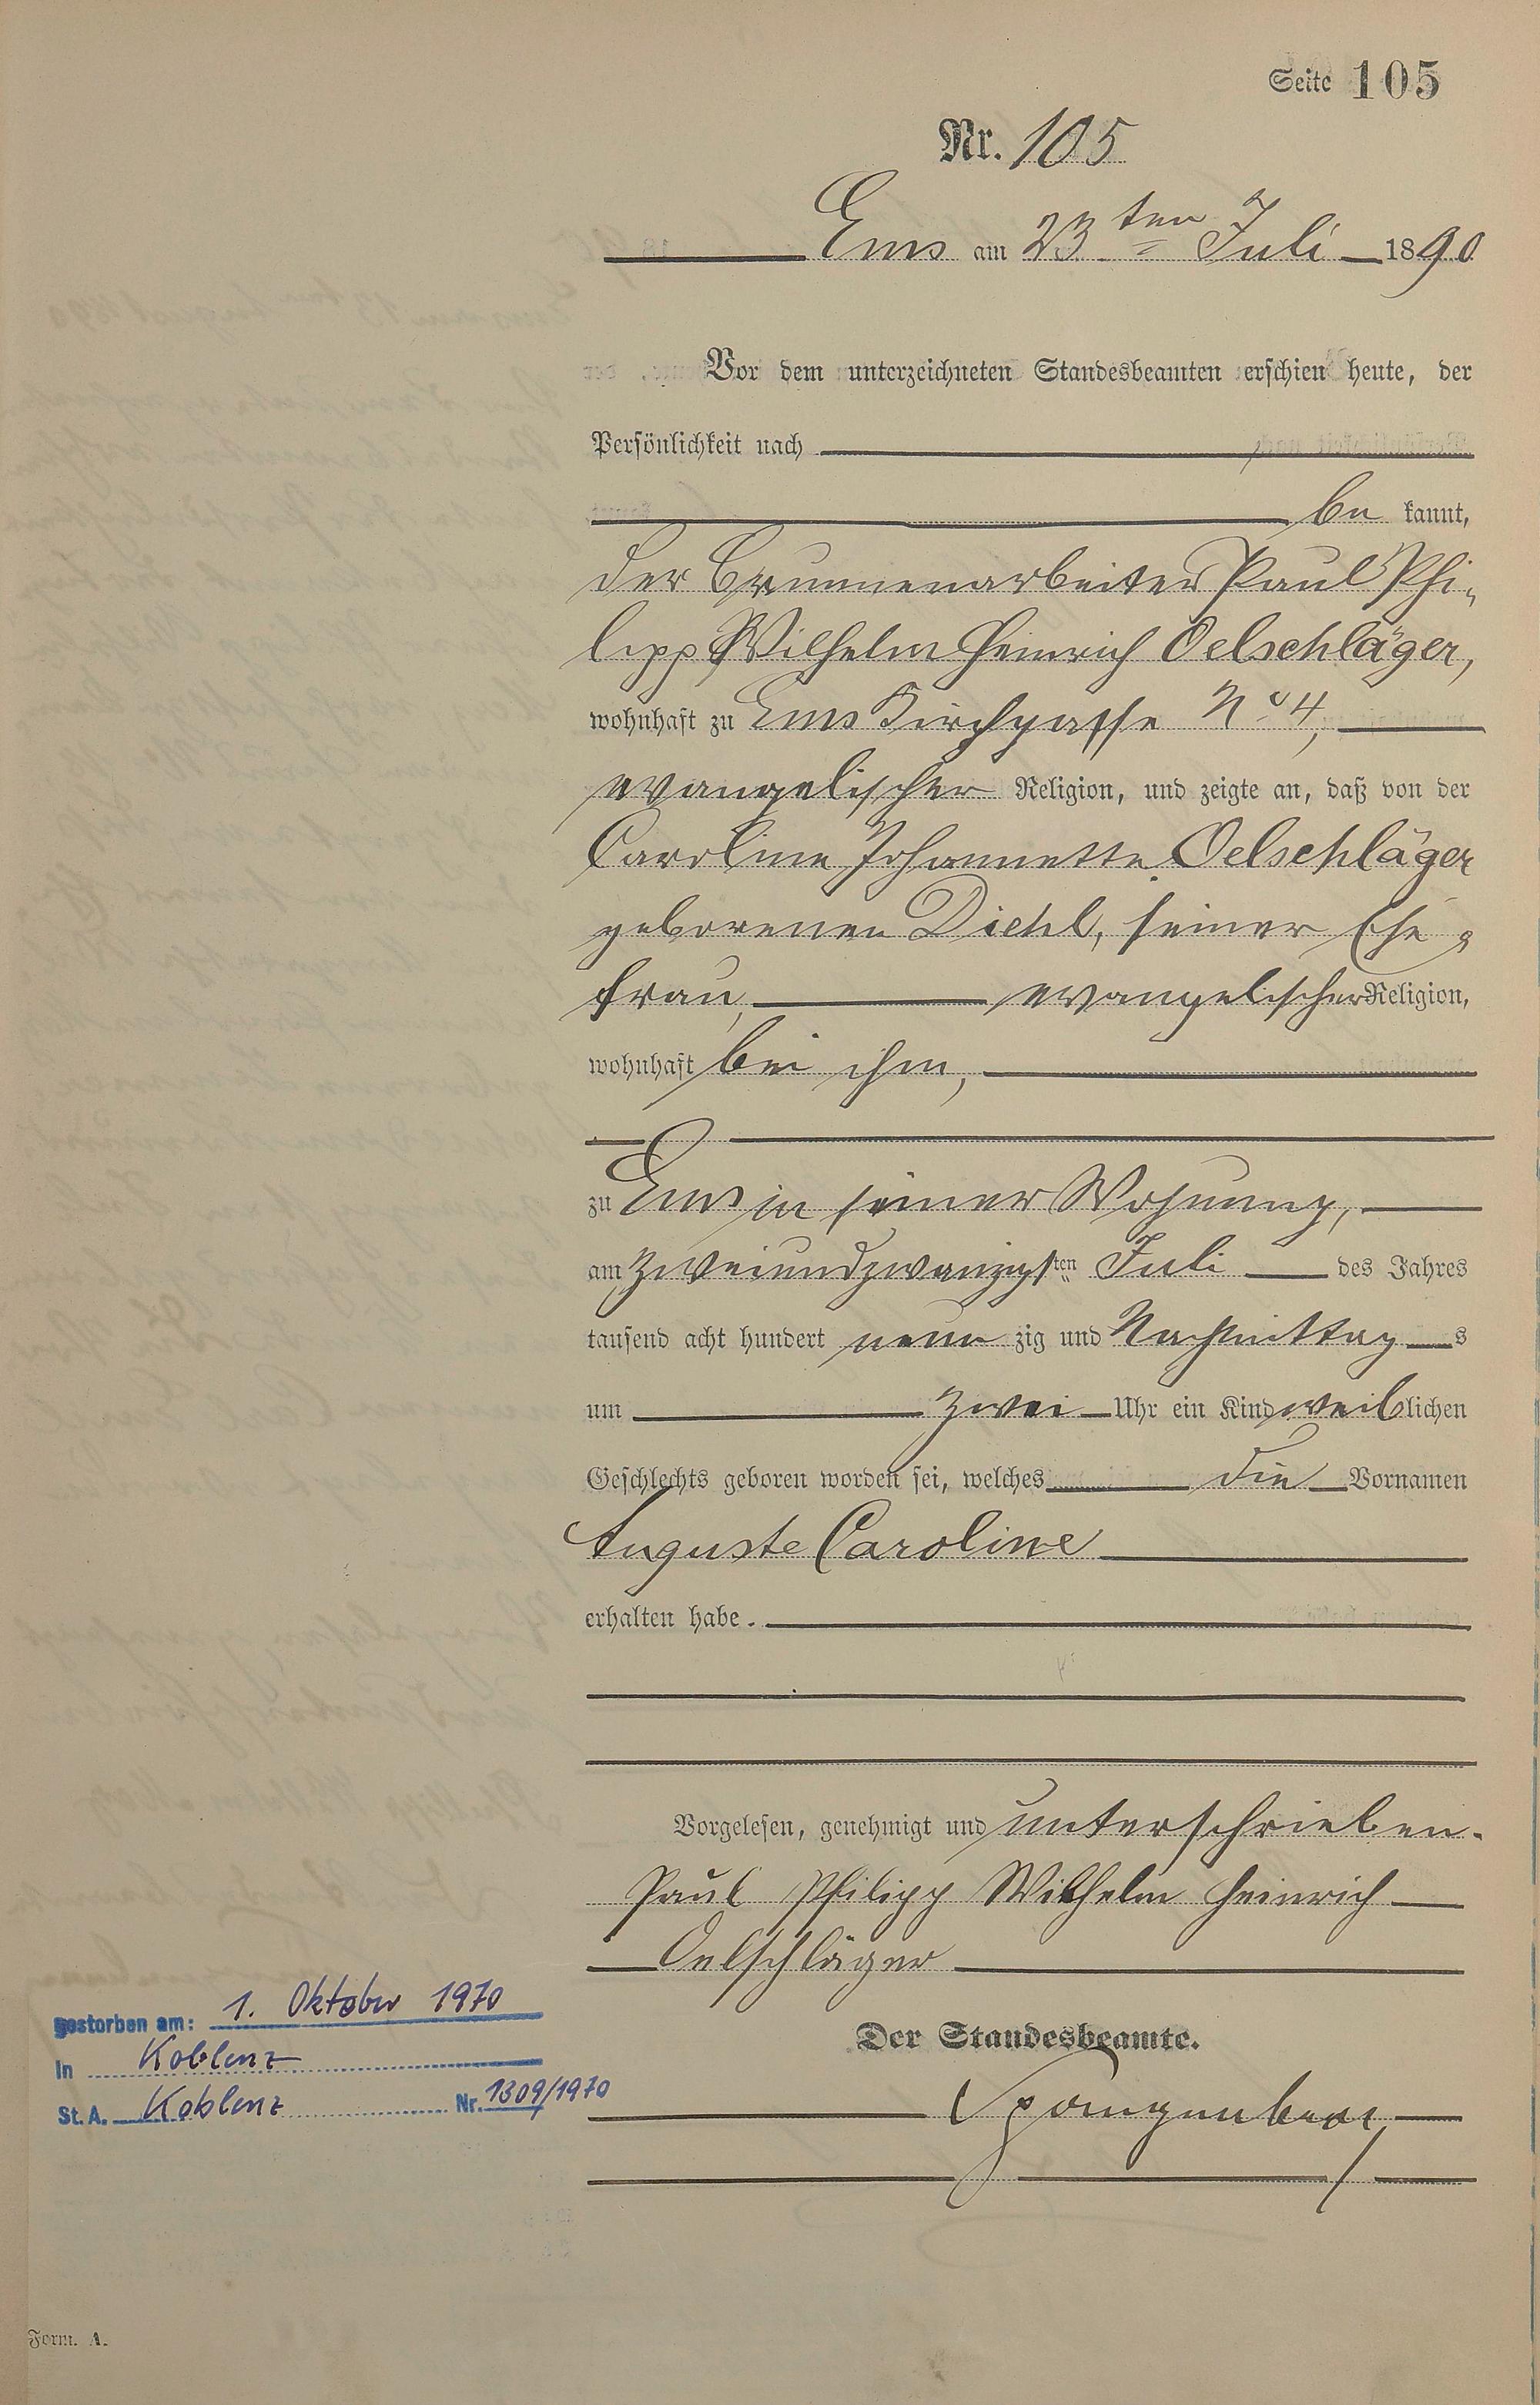 Seite 105
Nr. 105
Ems am 23ten Juli 1890
Vor dem unterzeichneten Standesbeamten erschien heute, der
Persönlichkeit nach
be kannt,
der Brunnenarbeiter Paul Phi-
lipp Wilhelm Heinrich Oelschläger,
wohnhaft zu Ems Kirchgasse No 4,
evangelischer Religion, und zeigte an, daß von der
Caroline Johannette Oelschläger
geborenen Diehl, seiner Ehe-
frau, evangelischer Religion,
wohnhaft bei ihm,
zu Ems in seiner Wohnung,
am zweiundzwanzigsten Juli des Jahres
tausend acht hundert neun zig und Nachmittag s
um zwei Uhr ein Kind weiblichen
Geschlechts geboren worden sei, welches die Vornamen
Auguste Caroline
erhalten habe.
Vorgelesen, genehmigt und unterschrieben.
Paul Philipp Wilhelm Heinrich
Oelschläger
Der Standesbeamte.
Spangenberg
gestorben am: 1. Oktober 1970
In Koblenz
St. A. Koblenz Nr. 1309/1970
Form. A.